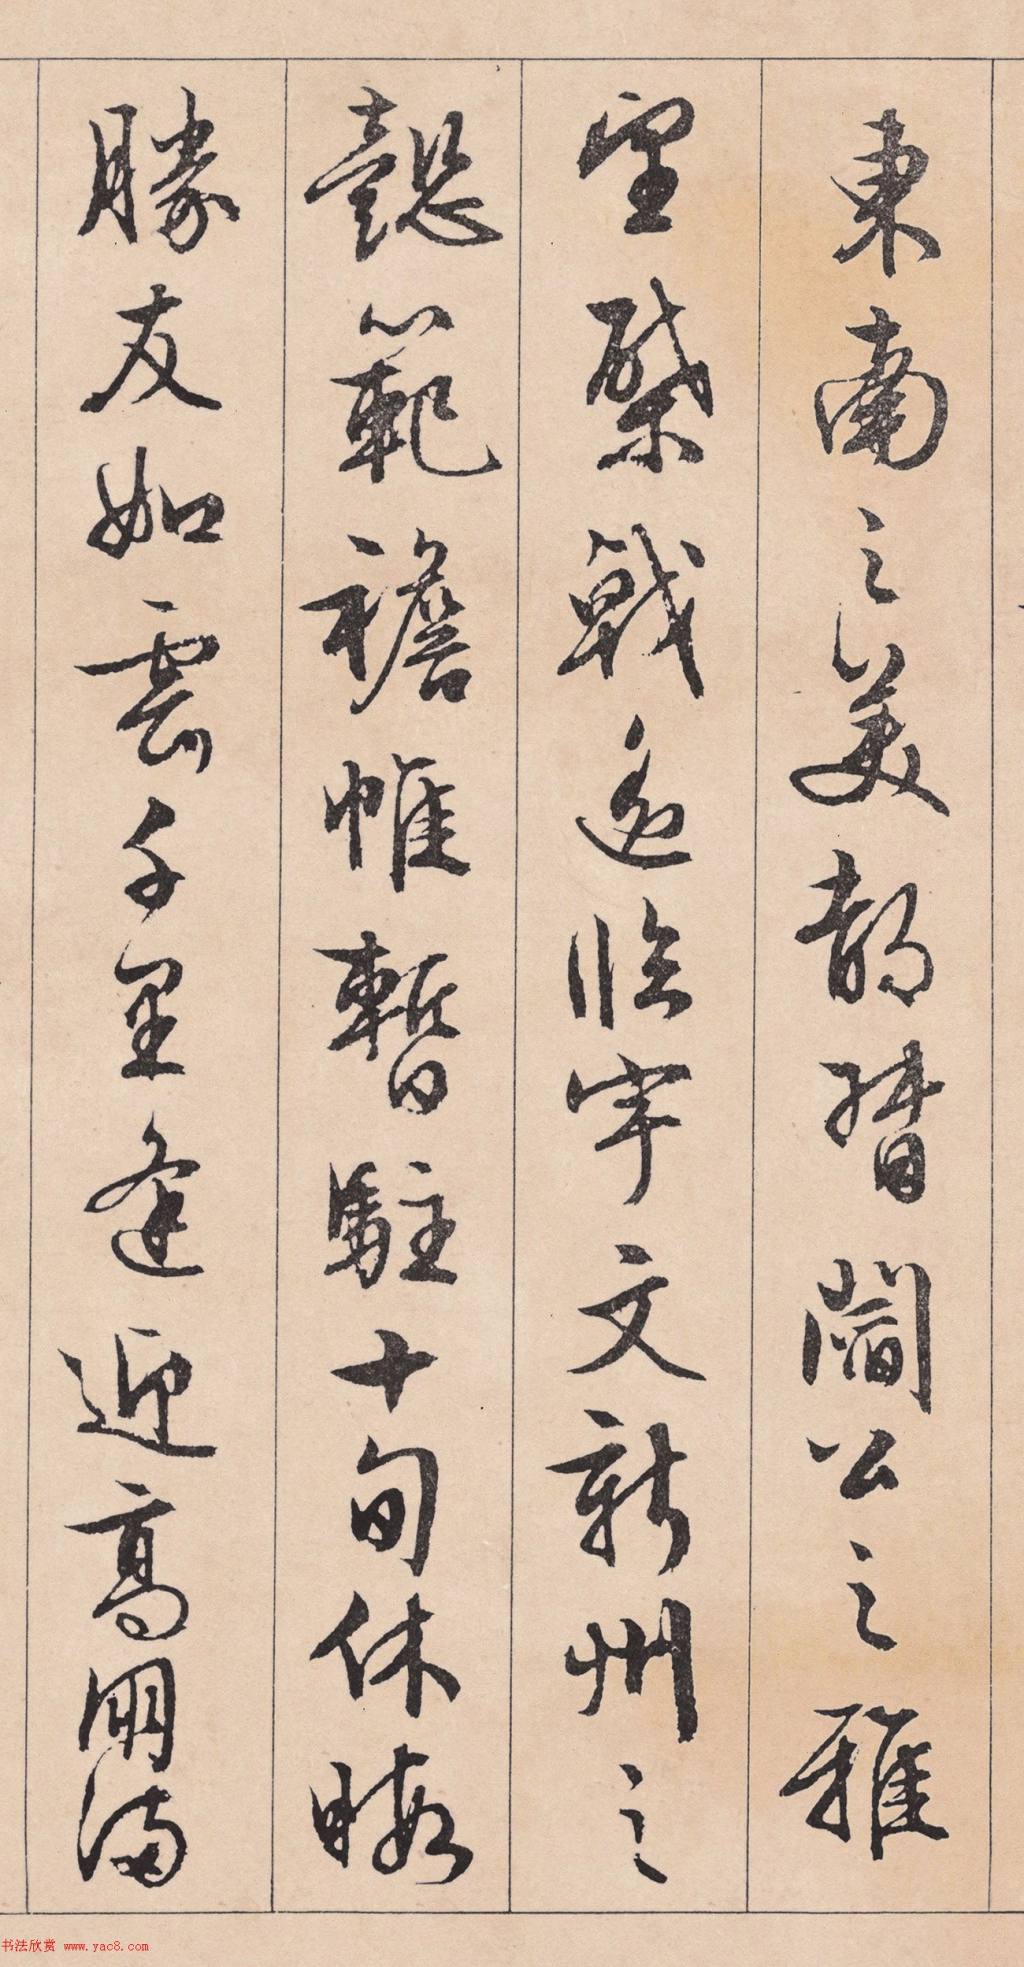 東南之美都督閻公之雅
望棨戟遥臨宇文新州之
懿範襜帷暫駐十旬休暇
勝友如雲千里逢迎高朋滿
书法欣赏 www.yac8.com